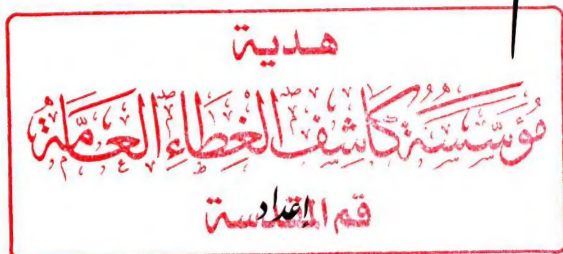 هدية
مُؤَسَّسَةُ كَاشِفِ الْغِطَاءِ الْعَامَّةُ
قم المقدسة
إعداد